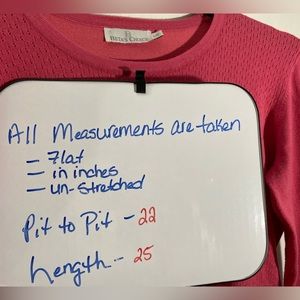 All Measurements are taken
– Flat
– in inches
– un-stretched
Pit to Pit – 22
Length – 25